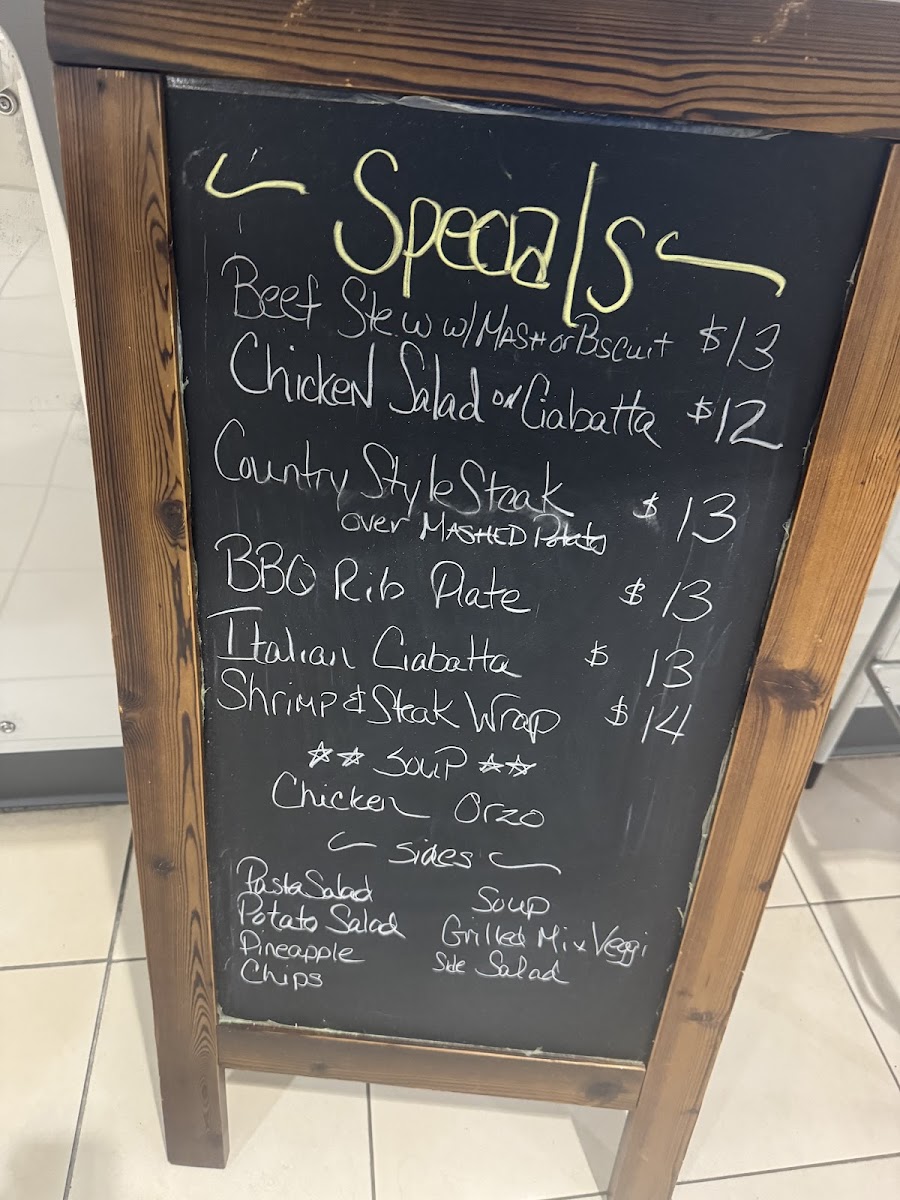 Specials
Beef Stew w/ MASH or Bscuit $13
Chicken Salad on Ciabatta $12
Country Style Steak $13
over MASHED Potato
BBQ Rib Plate $13
Italian Ciabatta $13
Shrimp & Steak Wrap $14
Soup
Chicken Orzo
Sides
Pasta Salad Soup
Potato Salad Grilled Mix Veggi
Pineapple Side Salad
Chips